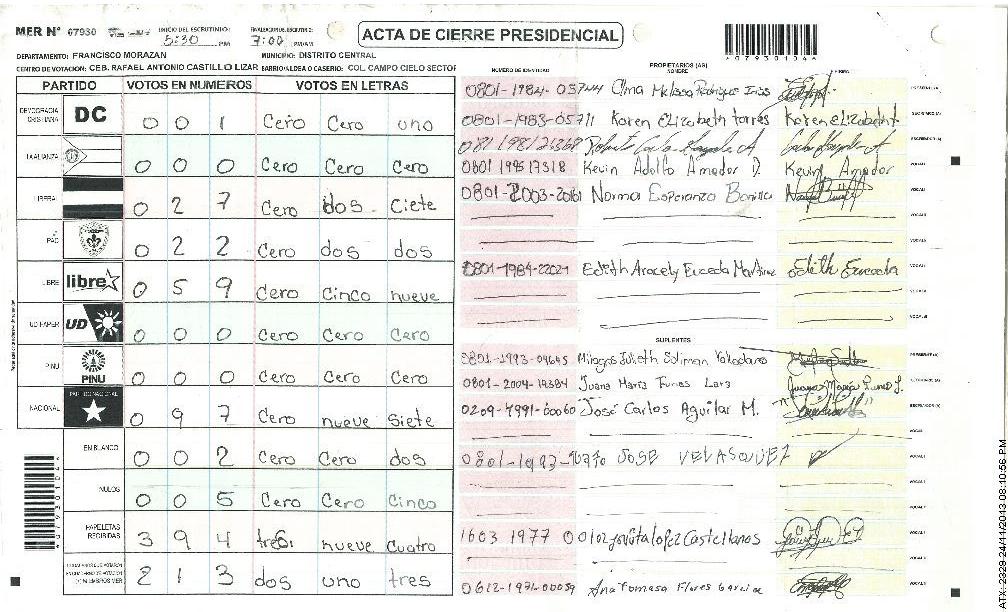 MER Nº 07930 INICIO DEL ESCRUTINIO: 5:30 PM 7:00 PM/AM
ACTA DE CIERRE PRESIDENCIAL
*07930104*
DEPARTAMENTO: FRANCISCO MORAZAN MUNICIPIO: DISTRITO CENTRAL
CENTRO DE VOTACION: CEB. RAFAEL ANTONIO CASTILLO LIZAR BARRIO/ALDEA O CASERIO: COL CAMPO CIELO SECTOR
PARTIDO VOTOS EN NUMEROS VOTOS EN LETRAS
DEMOCRACIA CRISTIANA DC 0 0 1 Cero Cero uno
FAALIANZA 0 0 0 Cero Cero Cero
LIBERAL 0 2 7 Cero dos Ciete
PAC 0 2 2 Cero dos dos
LIBRE libre 0 5 9 Cero Cinco nueve
UD FAPER UD 0 0 0 Cero Cero Cero
PINU PINU 0 0 0 Cero Cero Cero
NACIONAL PARTIDO NACIONAL 0 9 7 Cero nueve Siete
EN BLANCO 0 0 2 Cero Cero dos
NULOS 0 0 5 Cero Cero Cinco
PAPELETAS RECIBIDAS 3 9 4 tres nueve Cuatro
2 1 3 dos uno tres
NÚMERO DE IDENTIDAD PROPIETARIOS (AS) NOMBRE FIRMA
0801-1984-03744 Olma Melissa Rodriguez PRESIDENTE (A)
0801-1983-05711 Karen Elizabeth torres Karen elizabeth t SECRETARIO (A)
ESCRUTADOR (A)
0801 1995 17318 Kevin Adolfo Amador D. Kevin Amador VOCAL I
0801-2003-20161 Norma Esperanza Bonilla
0801-1984-22021 Edith Aracely Euceda Martinez Edith Euceda
SUPLENTES
0801-1993-09665 Milagros Julieth Soliman Valladares PRESIDENTE (A)
0801-2004-19384 Juana Maria Funes Lara SECRETARIO (A)
0209-1991-00060 José Carlos Aguilar M. ESCRUTADOR (A)
JOSE VELASQUEZ
1603 1977 00102 Castellanos
0612-1971-00059 Ana Tomasa Flores Garcia
*07930104*
ATX-2229-24/11/2013-08:10:56 PM